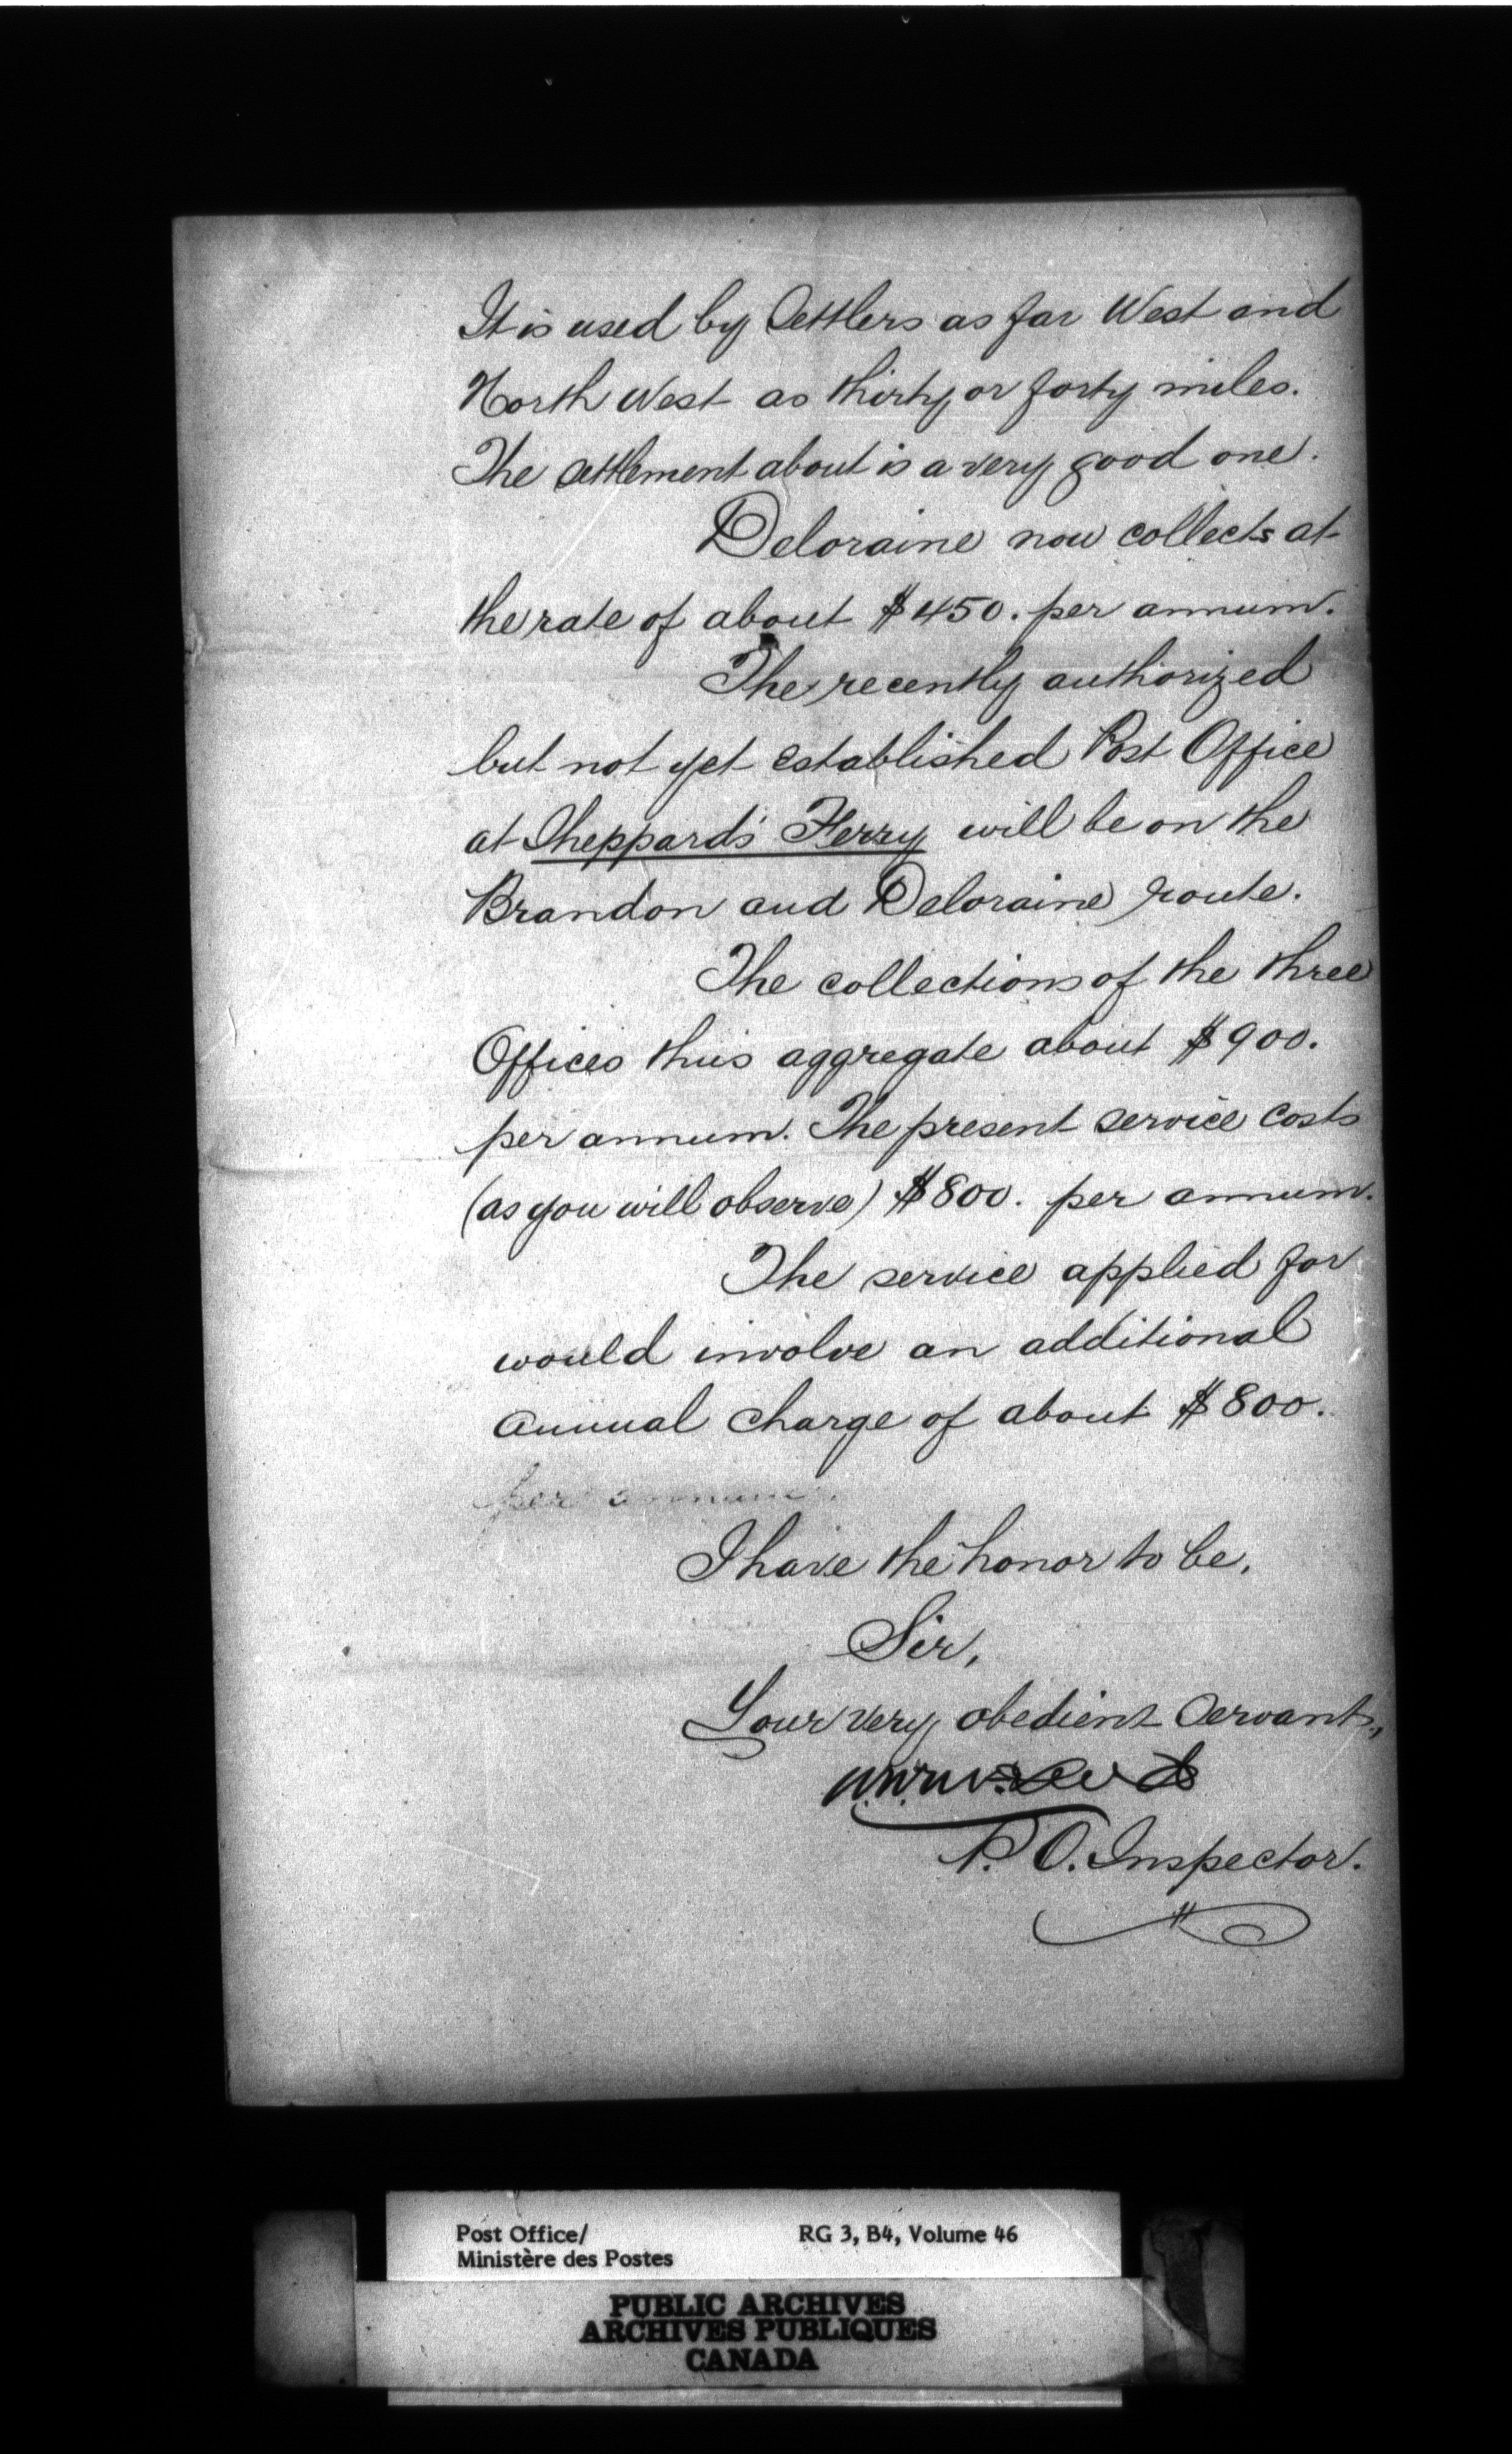 It is used by Settlers as far West and
North West as thirty or forty miles.
The settlement about is a very good one.
Deloraine now collects at
the rate of about $450. per annum.
The recently authorized
but not yet established Post Office
at Sheppard's Ferry will be on the
Brandon and Deloraine route.
The collections of the three
Offices thus aggregate about $900.
per annum. The present service costs
(as you will observe) $800. per annum.
The service applied for
would involve an additional
annual charge of about $800.
per annum.
I have the honor to be,
Sir,
Your very obedient Servant,
P.O. Inspector.
Post Office/
Ministère des Postes
RG 3, B4, Volume 46
PUBLIC ARCHIVES
ARCHIVES PUBLIQUES
CANADA